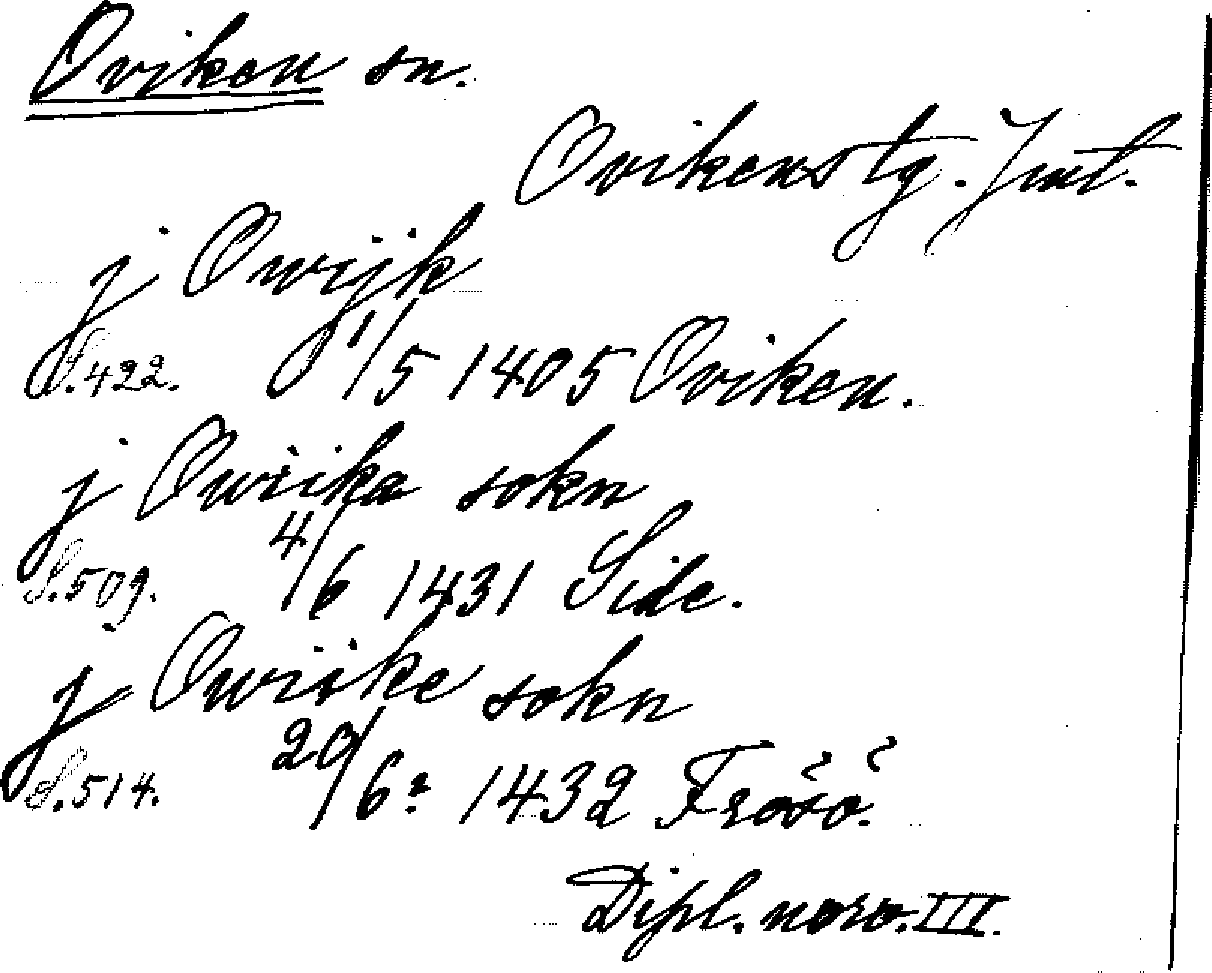 Oviken sn.
Ovikens tg. Jmt.
j Owijk
S.422. 1/5 1405 Oviken.
j Owiika sokn
S.509. 4/6 1431 Side.
j Owiike sokn
S.514. 20/6? 1432 Frösö.
Dipl. norv. III.